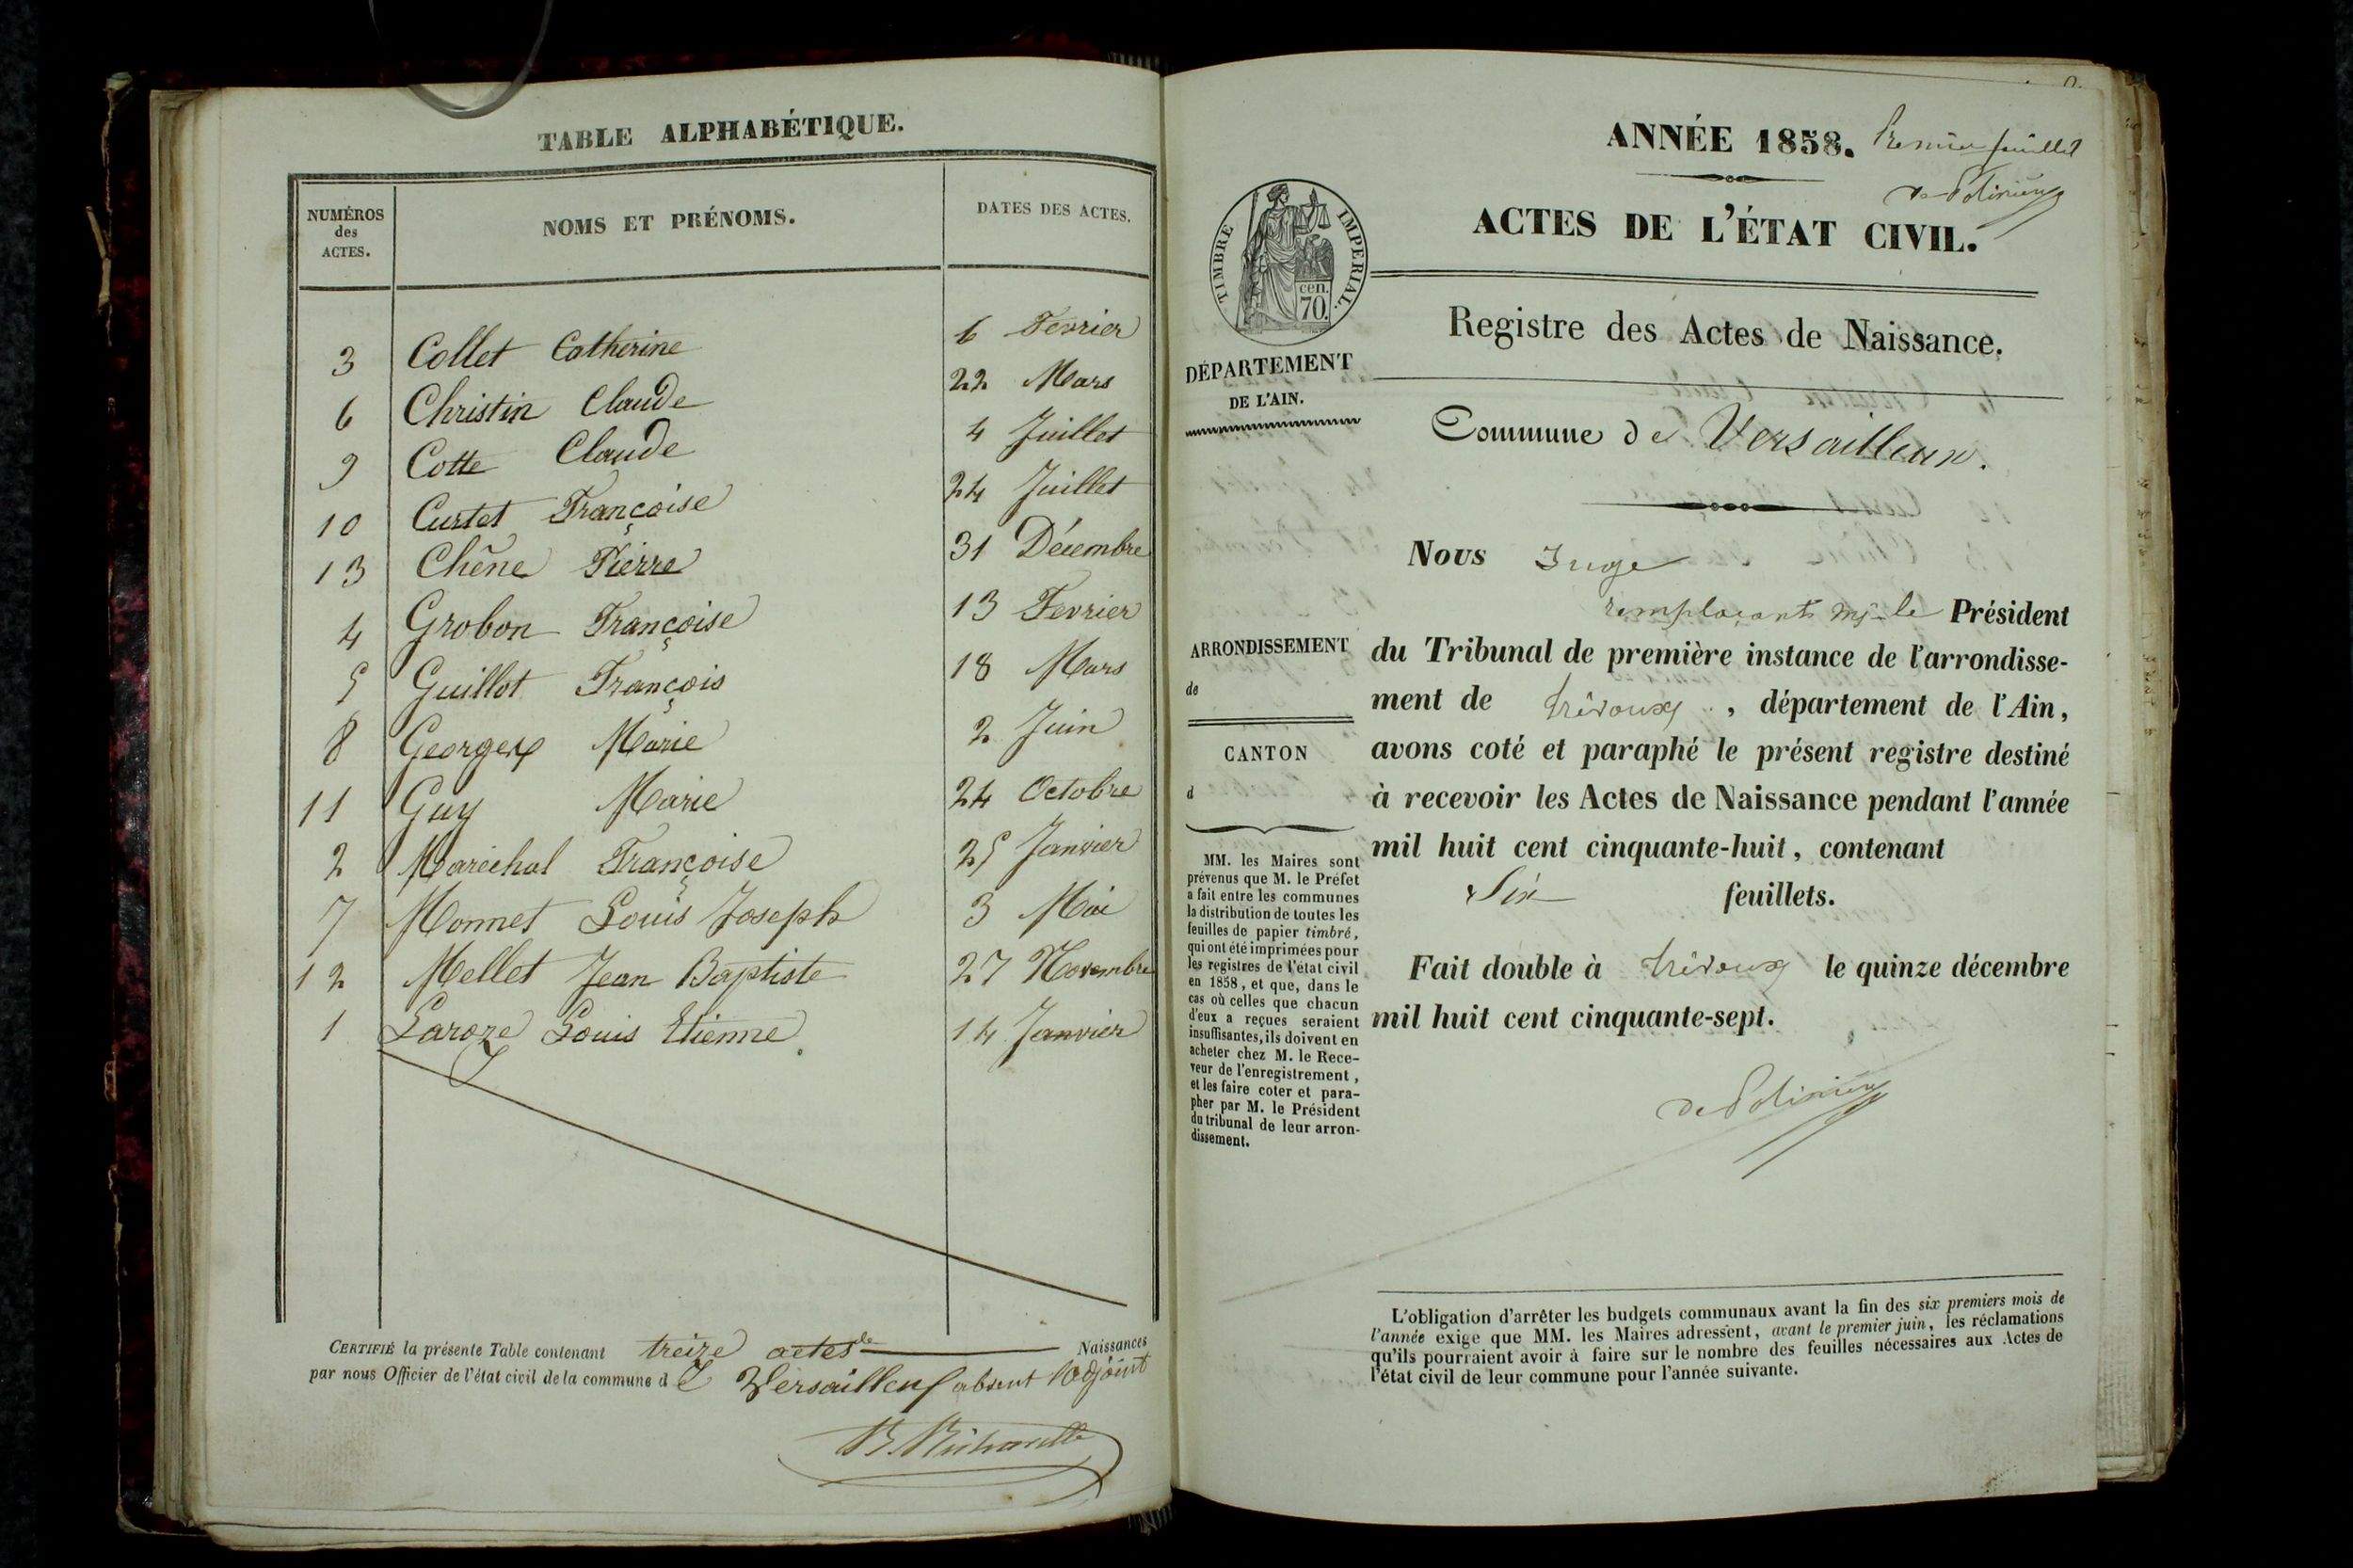 TABLE ALPHABÉTIQUE.
NUMÉROS
des
ACTES.
NOMS ET PRÉNOMS.
DATES DES ACTES.
3 Collet Catherine 6 Fevrier
6 Christin Claude 22 Mars
9 Cotte Claude 4 Juillet
10 Curtet Françoise 24 Juillet
13 Chêne Pierre 31 Décembre
4 Grobon Françoise 13 Fevrier
5 Guillot François 18 Mars
8 Georges Marie 2 Juin
11 Guy Marie 24 Octobre
2 Maréchal Françoise 25 Janvier
7 Monnet Louis Joseph 3 Mai
12 Mellet Jean Baptiste 27 Novembre
1 Laroze Louis Etienne 14 Janvier
CERTIFIÉ la présente Table contenant treize actes de Naissances
par nous Officier de l'état civil de la commune d e Versailleux absent l'adjoint
ANNÉE 1858. Premier feuillet
ACTES DE L'ÉTAT CIVIL.
TIMBRE IMPERIAL.
cen.
70.
Registre des Actes de Naissance.
DÉPARTEMENT
DE L'AIN.
Commune de Versailleux.
Nous Juge
remplaçant mr le Président
du Tribunal de première instance de l'arrondisse-
ment de Trévoux, département de l'Ain,
avons coté et paraphé le présent registre destiné
à recevoir les Actes de Naissance pendant l'année
mil huit cent cinquante-huit, contenant
Six feuillets.
Fait double à Trévoux le quinze décembre
mil huit cent cinquante-sept.
ARRONDISSEMENT
de
CANTON
d
MM. les Maires sont
prévenus que M. le Préfet
a fait entre les communes
la distribution de toutes les
feuilles de papier timbré,
qui ont été imprimées pour
les registres de l'état civil
en 1858, et que, dans le
cas où celles que chacun
d'eux a reçues seraient
insuffisantes, ils doivent en
acheter chez M. le Rece-
veur de l'enregistrement,
et les faire coter et para-
pher par M. le Président
du tribunal de leur arron-
dissement.
L'obligation d'arrêter les budgets communaux avant la fin des six premiers mois de
l'année exige que MM. les Maires adressent, avant le premier juin, les réclamations
qu'ils pourraient avoir à faire sur le nombre des feuilles nécessaires aux Actes de
l'état civil de leur commune pour l'année suivante.